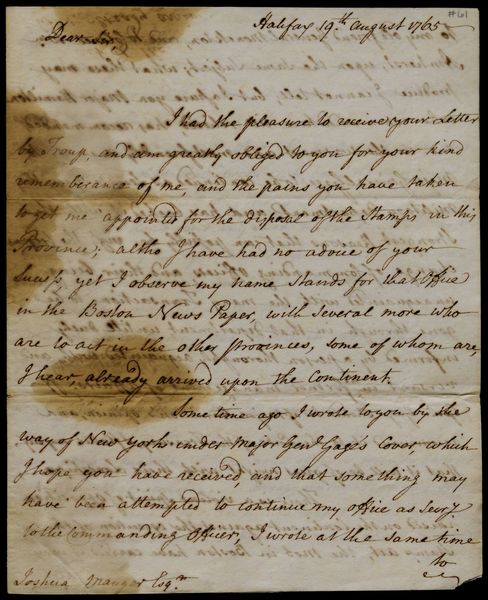 #61
Halifax 19th August 1765
Dear Sir,
I had the pleasure to receive your Letter
by Troup, and am greatly obliged to you for your kind
rememberance of me, and the pains you have taken
to get me appointed for the disposal of the Stamps in this
Province; altho I have had no advice of your
Success, yet I observe my name stands for that Office
in the Boston News Paper, with several more who
are to act in the other Provinces, some of whom are,
I hear, already arrived upon the Continent.
Some time ago I wrote to you by the
way of New York under Major Genl Gage's Cover, which
I hope you have received and that something may
have been attempted to continue my office as Secry.
to the Commanding Officer, I wrote at the same time
to
Joshua Mauger Esqr.